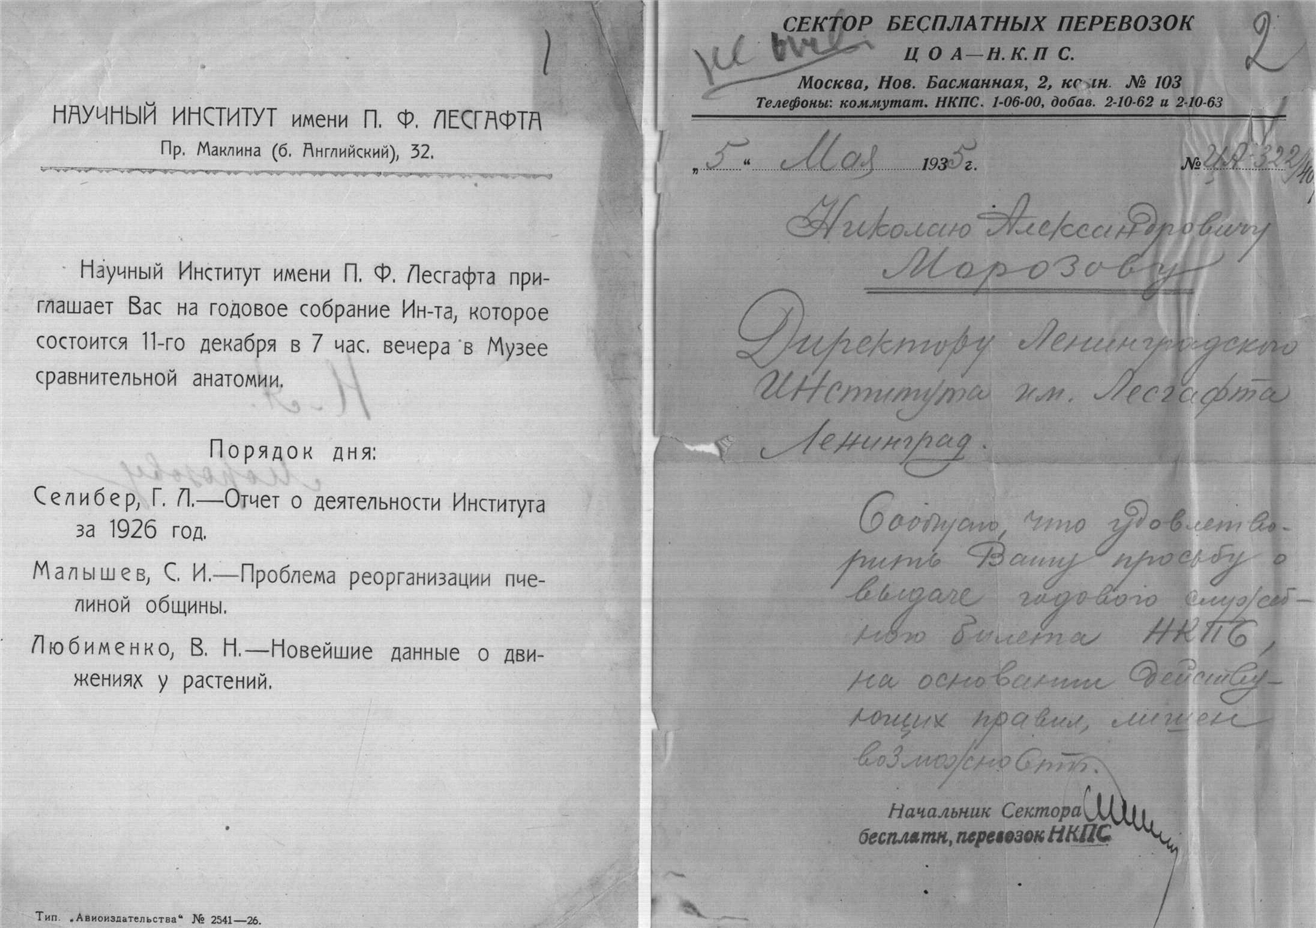 1
НАУЧНЫЙ ИНСТИТУТ имени П. Ф. ЛЕСГАФТА
Пр. Маклина (б. Английский), 32.
Научный Институт имени П. Ф. Лесгафта при-
глашает Вас на годовое собрание Ин-та, которое
состоится 11-го декабря в 7 час. вечера в Музее
сравнительной анатомии.
Н. А.
Порядок дня:
Морозову
Селибер, Г. Л.—Отчет о деятельности Института
за 1926 год.
Малышев, С. И.—Проблема реорганизации пче-
линой общины.
Любименко, В. Н.—Новейшие данные о дви-
жениях у растений.
Тип. „Авиоиздательства" № 2541—26.
2
СЕКТОР БЕСПЛАТНЫХ ПЕРЕВОЗОК
ЦОА—Н.К.П С.
Москва, Нов. Басманная, 2, комн. № 103
Телефоны: коммутат. НКПС. 1-06-00, добав. 2-10-62 и 2-10-63
„5" Мая 1935 г. № ЦА-322/40
Николаю Александровичу
Морозову
Директору Ленинградского
Института им. Лесгафта
Ленинград.
Сообщаю, что удовлетво-
рить Вашу просьбу о
выдаче годового служеб-
ного билета НКПС,
на основании действу-
ющих правил, лишен
возможности.
Начальник Сектора
бесплатн, перевозок НКПС